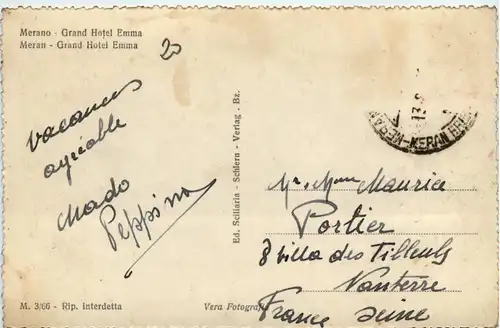 Merano - Grand Hotel Emma
Meran - Grand Hotel Emma
20
vacances
agréable
Mado
Peppino
Ed. Sciliaria - Schlern - Verlag - Bz.
MERAN
Mr. & Mme Maurice
Portier
8 villa des Tilleuls
Nanterre
France Seine
M. 3/66 - Rip. interdetta
Vera Fotografia